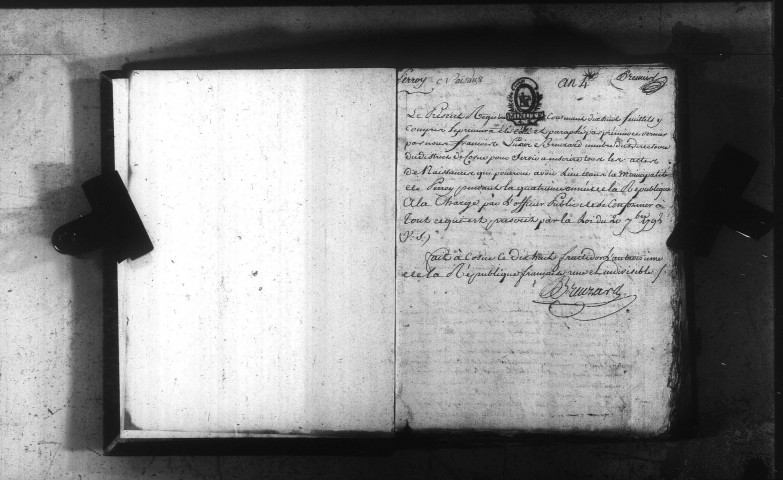 Perroy Naissances an 4e Bruzard
MINUTE
Le Présent Registre Contenant dixhuit feuillets y
compris le premier a été coté et paraphé par premier et dernier
par nous françois Bruzard membre du directoire
du district de Cosne pour Servir a inscrire tous les actes
de Naissances qui pourront avoir lieu dans la municipalité
de Perroy pendant la quatrieme année de la République
a la Charge par l'officier Public de se Conformer à
tout ce qui est prescrit par la Loi du 20 7bre 1792
(V. S.)
fait à Cosne le dixhuit fructidor l'an troisieme
de la République française une et indivisible
Bruzard